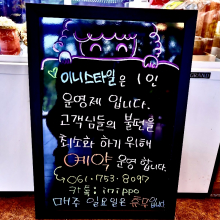 이니스타일은 1인
운영제 입니다.
고객님들의 불편을
최소화 하기 위해
예약 운영 합니다.
061.753-8097
카톡: inippo
매주 일요일은 휴무입니다